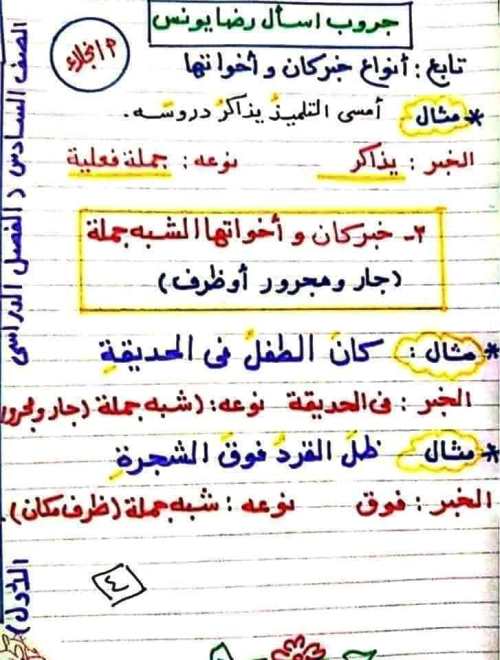 جروب اسأل رضا يونس
م/نجلاء
تابع : أنواع خبر كان و أخواتها
* مثال : أمسى التلميذُ يذاكرُ دروسَه .
الخبر : يذاكر نوعه : جملة فعلية
٣- خبر كان و أخواتها الشبه جملة
(جار و مجرور أو ظرف)
* مثال : كانَ الطفلُ فى الحديقةِ
الخبر : فى الحديقة نوعه : (شبه جملة (جار ومجرور
* مثال ظلَّ القردُ فوقَ الشجرةِ
الخبر : فوق نوعه : شبه جملة (ظرف مكان) .
٤
الصف السادس ( الفصل الدراسى
الأول )